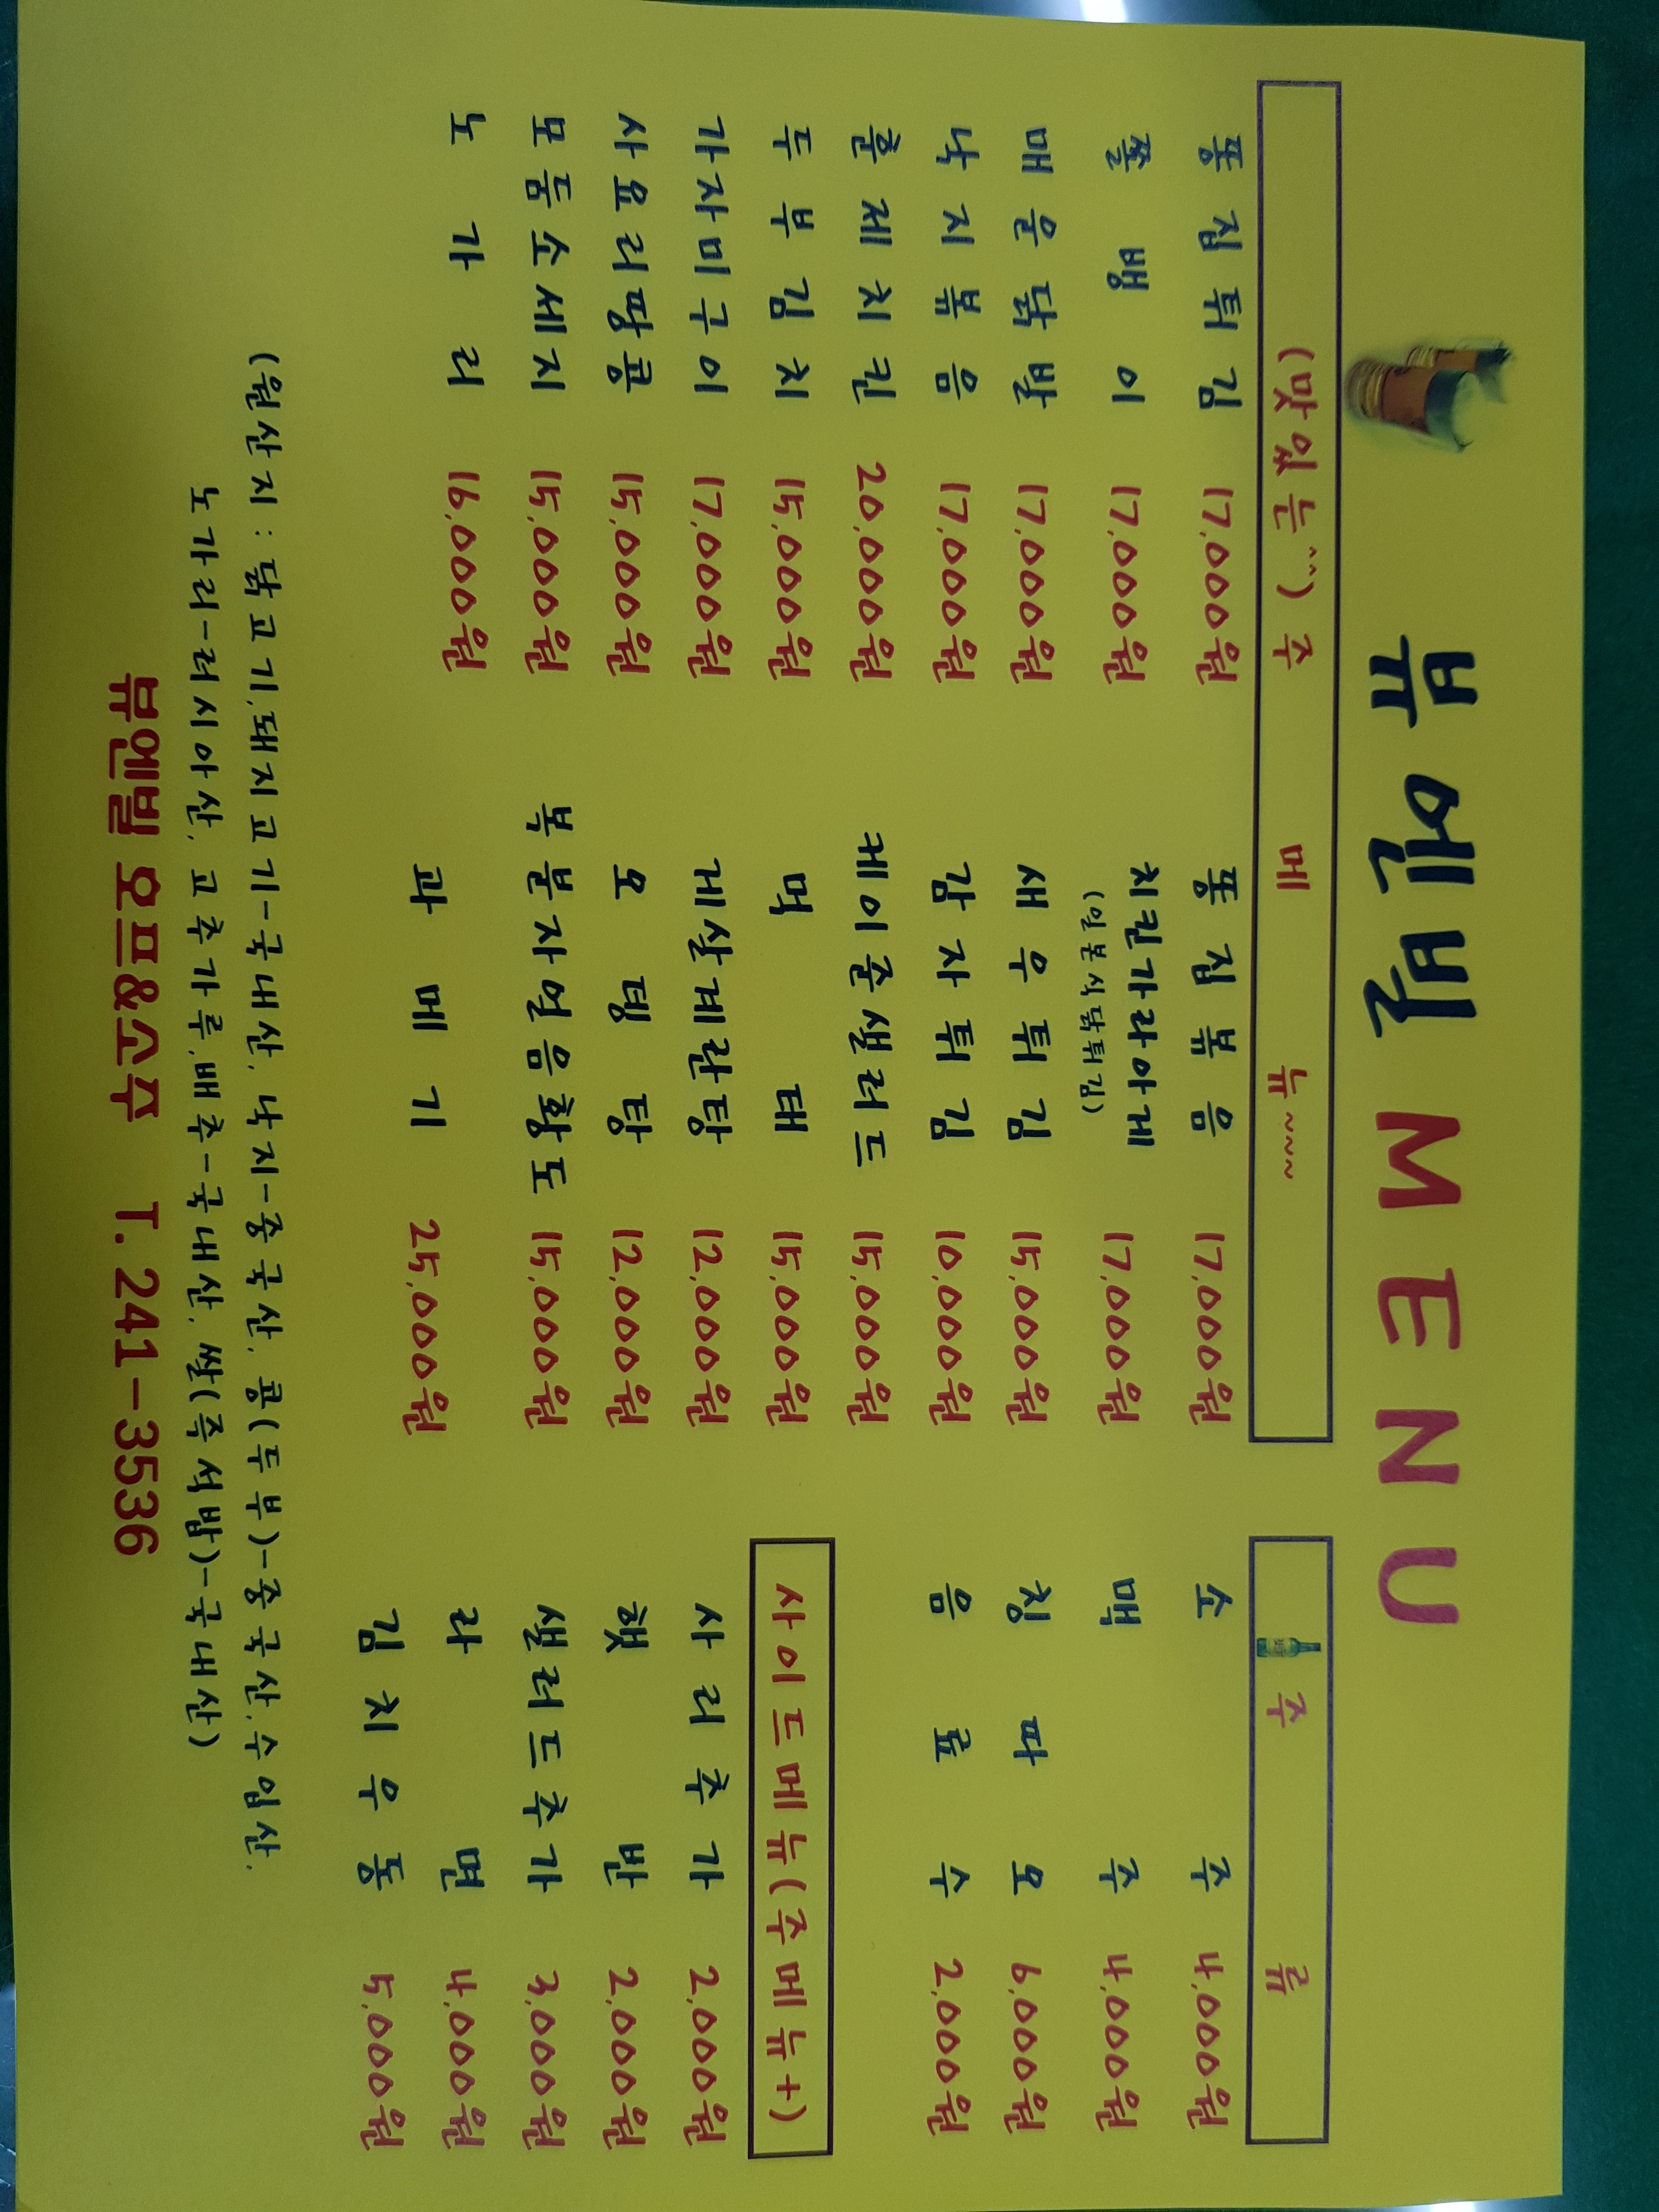 뷰엔빌 MENU
(맛있는^^) 주 메 뉴~~~
똥집튀김 17,000원
쫄뱅이 17,000원
매운닭발 17,000원
낙지볶음 17,000원
훈제치킨 20,000원
두부김치 15,000원
가자미구이 17,000원
사요리땅콩 15,000원
모듬소세지 15,000원
노가리 16,000원
똥집볶음 17,000원
치킨가라아게 17,000원
(일본식닭튀김)
새우튀김 15,000원
감자튀김 10,000원
케이준샐러드 15,000원
먹태 15,000원
게살계란탕 12,000원
오뎅탕 12,000원
복분자얼음황도 15,000원
과메기 25,000원
주 류
소주 4,000원
맥주 4,000원
칭따오 6,000원
음료수 2,000원
사이드메뉴(주메뉴+)
사리추가 2,000원
햇반 2,000원
샐러드추가 3,000원
라면 4,000원
김치우동 5,000원
(원산지 : 닭고기,돼지고기-국내산, 낙지-중국산, 콩(두부)-중국산,수입산,
노가리-러시아산, 고추가루,배추-국내산, 쌀(즉석밥)-국내산)
뷰엔빌 호프&소주 T. 241-3536